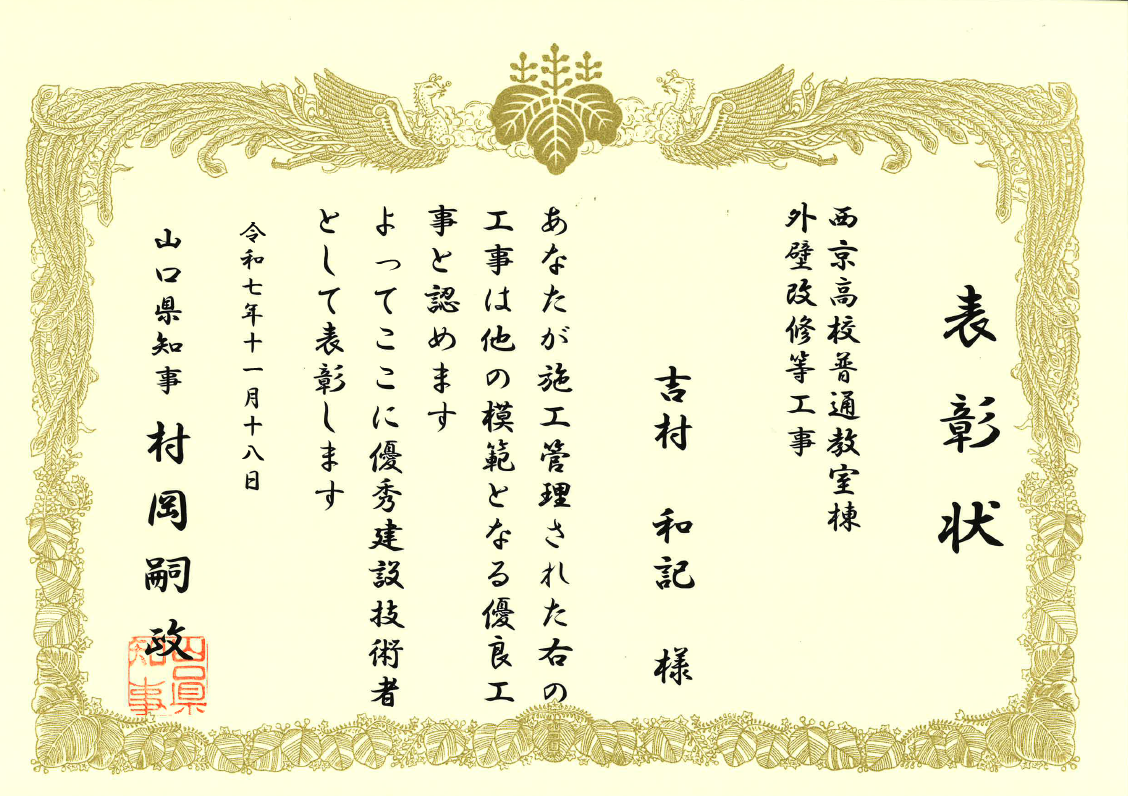 表彰状
西京高校普通教室棟
外壁改修等工事
吉村 和記 様
あなたが施工管理された右の
工事は他の模範となる優良工
事と認めます
よってここに優秀建設技術者
として表彰します
令和七年十一月十八日
山口県知事 村岡嗣政
山口県
知事